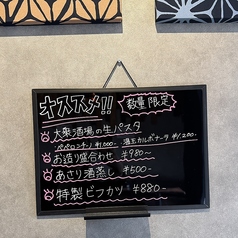 オススメ!! 数量限定
大衆酒場の生パスタ
ペペロンチーノ ¥1,000- 濃玉カルボナーラ ¥1,200-
お造り盛合わせ ¥980〜
あさり酒蒸し ¥600〜
特製ビフカツ ¥880〜